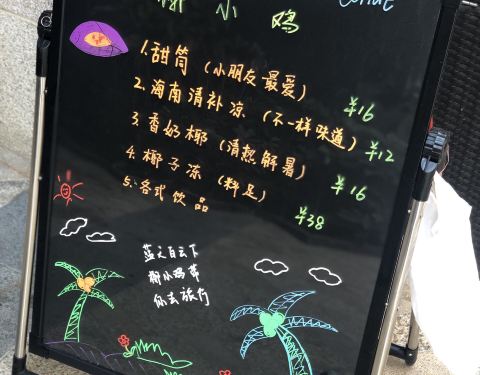 椰小鸡
1.甜筒(小朋友最爱) ¥16
2.海南清补凉(不一样味道) ¥12
3.香奶椰(清热解暑) ¥16
4.椰子冻(料足) ¥38
5.各式饮品
蓝天白云下
椰小鸡带
你去旅行